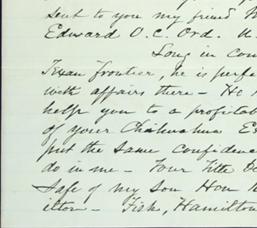 sent to you my friend
Edward O. C. Ord. U.
Long in com
Texan frontier, he is perfe
with affairs there - He
helps you to a profitab
of your Chihuahua Es
put the same confidenc
do in me - Your Title De
Safe of my son Hon
ilton - Fish, Hamilton